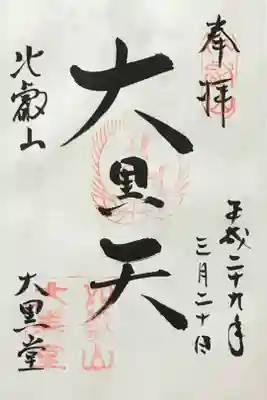 奉拝
平成二十九年
三月二十日
大黒天
比叡山
大黒堂